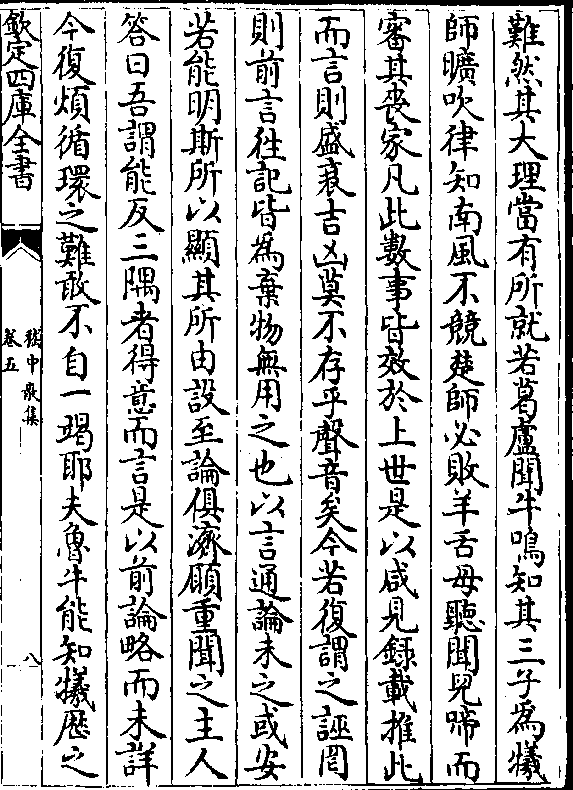 難然其大理當有所就若葛盧聞牛鳴知其三子為犧
師曠吹律知南風不競楚師必敗羊舌母聽聞兒啼而
審其喪家凡此數事皆效於上世是以咸見録載推此
而言則盛衰吉凶莫不存乎聲音矣今若復謂之誣罔
則前言往記皆為棄物無用之也以言通論未之或安
若能明斯所以顯其所由設至論俱濟願重聞之主人
答曰吾謂能反三隅者得意而言是以前論略而未詳
今復煩循環之難敢不自一竭耶夫魯牛能知犧歴之
欽定四庫全書
嵇中散集
卷五
八